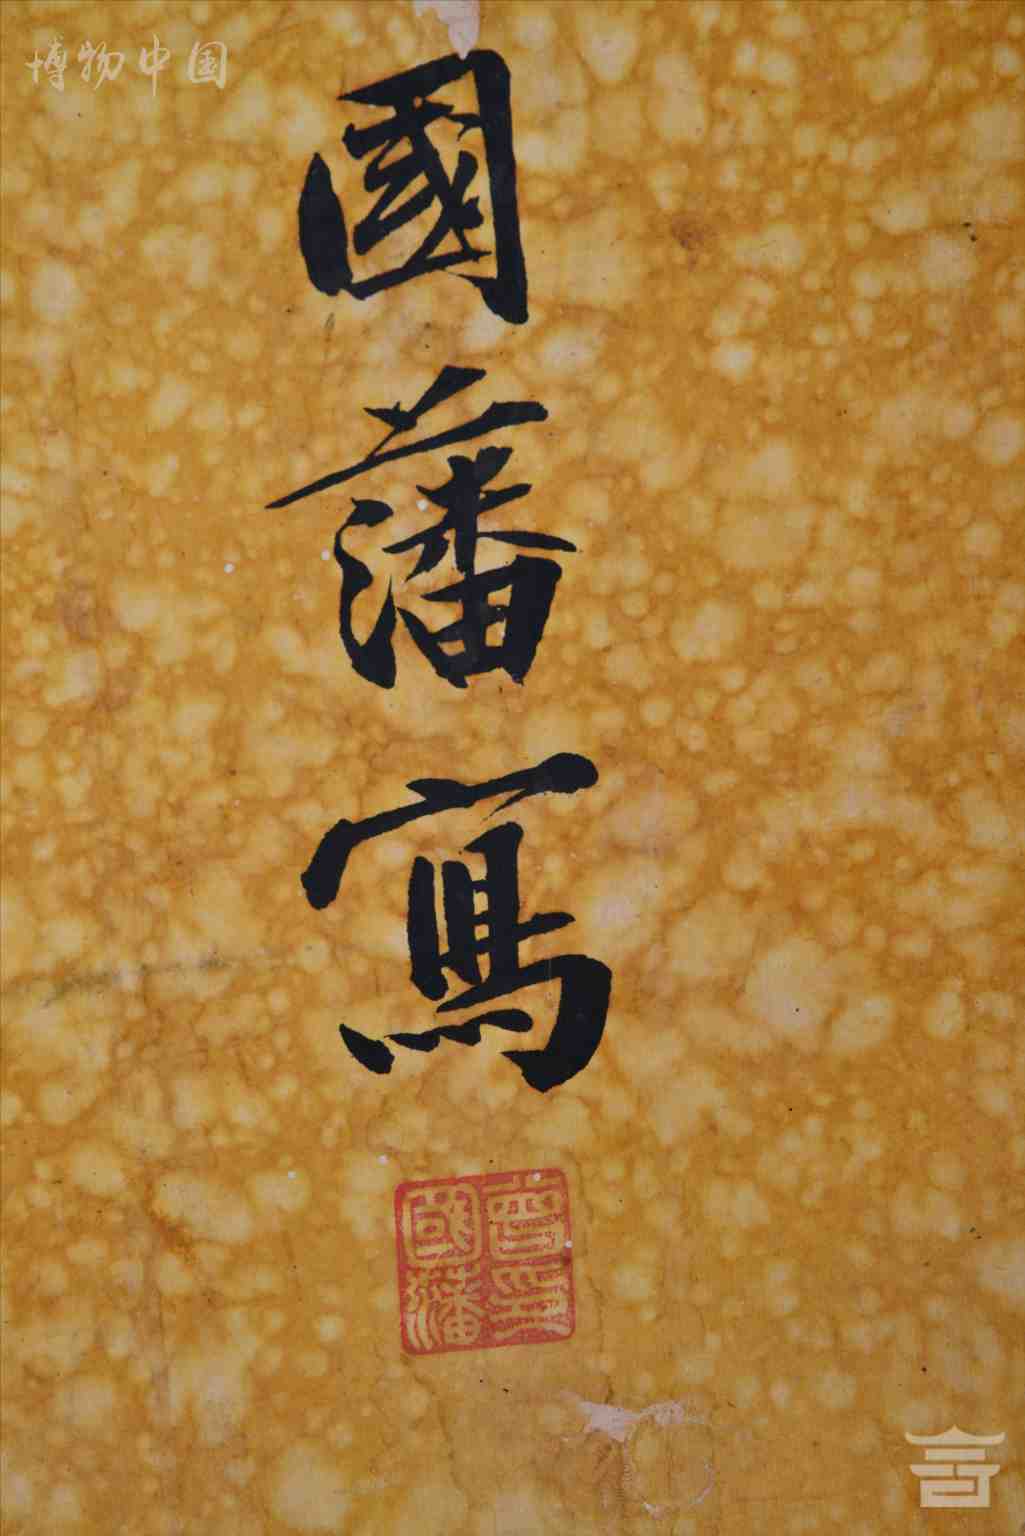 博物中国
國藩寫
曾印
國藩